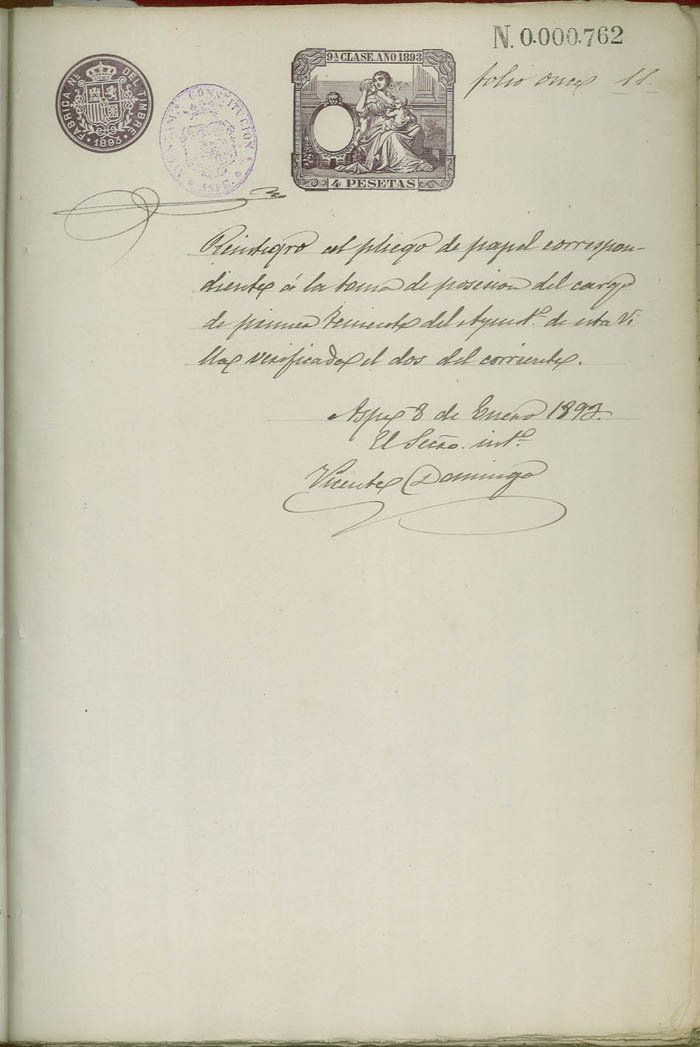 N. 0.000.762
9ª CLASE. AÑO 1893
FABRICA NL. DEL TIMBRE
1893
CONSTITUCION
ASPE.
folio once 11.
4 PESETAS
Reintegro al pliego de papel correspon-
diente á la toma de posesion del cargo
de primer Teniente del Ayunt.º de esta Vi
lla, verificada el dos del corriente.
Aspe 8 de Enero 1893.
El Secro. int.º
Vicente Domingo